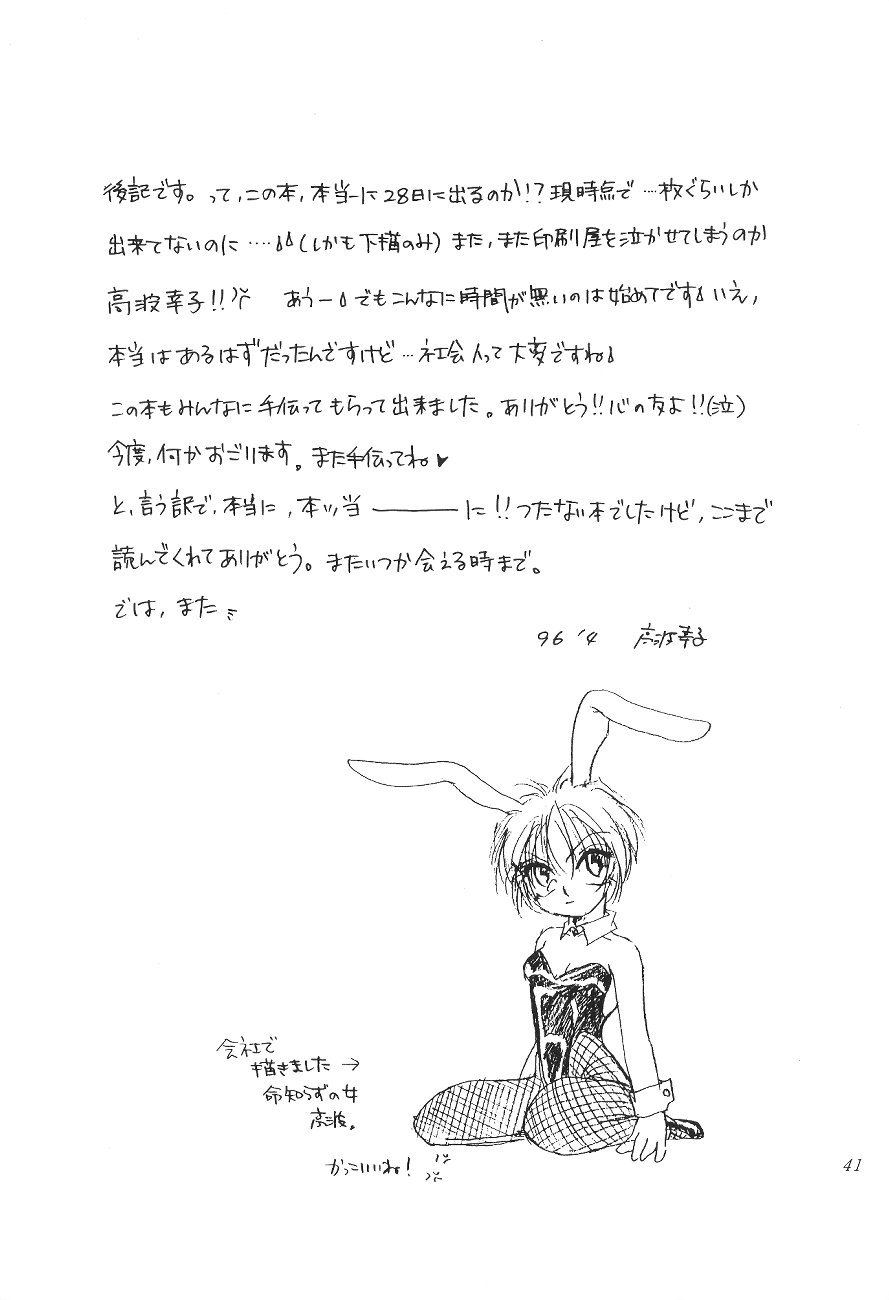 後記です。って、この本、本当に28日に出るのか!?現時点で…枚ぐらいしか
出来てないのに‥‥(しかも下描のみ)また、また印刷屋を泣かせてしまうのか
高波幸子!! あうーでもこんなに時間が無いのは始めてですいえ,
本当はあるはずだったんですけど…社会人って大変ですね
この本もみんなに手伝ってもらって出来ました。ありがとう!!心の友よ!!(泣)
今度,何かおごります。また手伝ってね♥
と,言う訳で,本当に,本ッ当―――に!!つたない本でしたけど,ここまで
読んでくれてありがとう。またいつか会える時まで。
では,また
96 '4 高波幸子
会社で
描きました →
命知らずの女
高波。
かっこいいね!
41